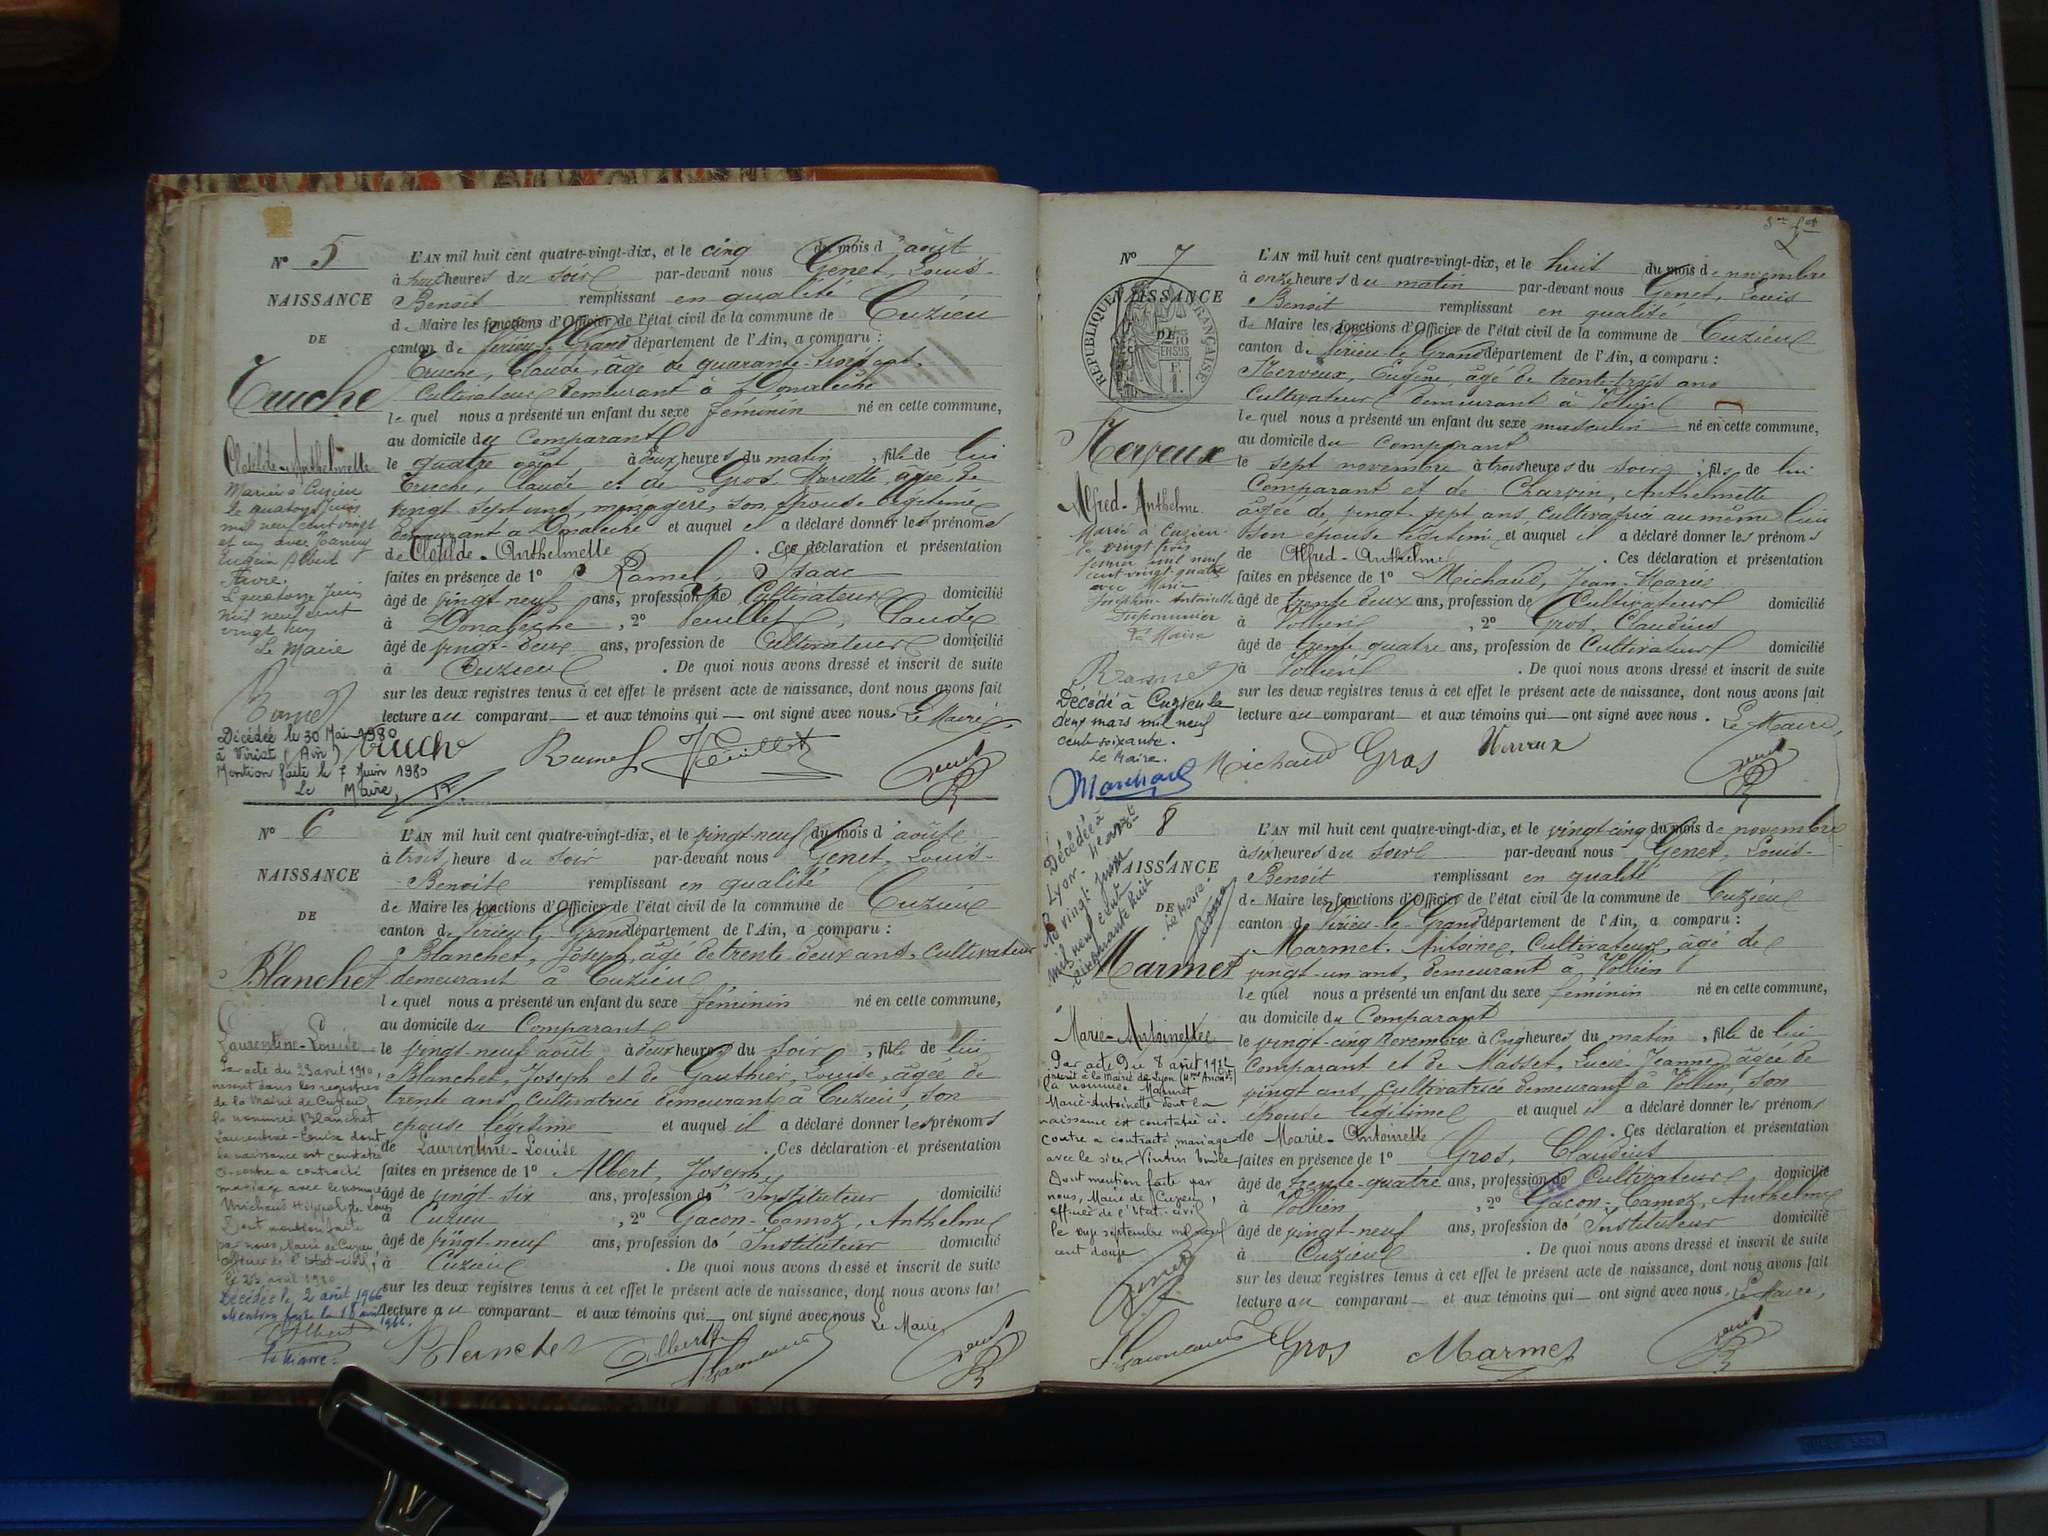 N° 5
NAISSANCE
DE
Truche
Clotilde-Anthelmette
Mariée à Cuzieu
le quatorze Juin
mil neuf cent vingt
et un avec
Eugène Albert
Favre.
Le quatorze Juin
mil neuf cent
vingt un
Le Maire
Décédée le 30 Mai 1980
à Viriat (Ain)
Mention faite le 7 Juin 1980
Le Maire,
L'AN mil huit cent quatre-vingt-dix, et le cinq du mois d'août
à huit heures du soir par-devant nous Genet, Louis-
Benoit remplissant en qualité
de Maire les fonctions d'Officier de l'état civil de la commune de Cuzieu
canton de Virieu-le-Grand département de l'Ain, a comparu :
Truche, Claude, âgé de quarante-trois ans,
Cultivateur demeurant à Donalèche
lequel nous a présenté un enfant du sexe féminin né en cette commune,
au domicile du Comparant
le quatre août à deux heures du matin, fille de lui
Truche, Claude et de Gros Mariette, âgée de
vingt-sept ans, ménagère, son épouse légitime
demeurant à Donalèche et auquel il a déclaré donner les prénoms
de Clotilde-Anthelmette. Ces déclaration et présentation
faites en présence de 1° Ramel, Isaac
âgé de vingt-neuf ans, profession de Cultivateur domicilié
à Donalèche, 2° Veuillet, Claude
âgé de vingt-deux ans, profession de Cultivateur domicilié
à Cuzieu. De quoi nous avons dressé et inscrit de suite
sur les deux registres tenus à cet effet le présent acte de naissance, dont nous avons fait
lecture au comparant et aux témoins qui ont signé avec nous. Le Maire,
Truche Ramel Veuillet Genet
N° 6
NAISSANCE
DE
Blanchet
Laurentine-Louise
Par acte du 23 avril 1910,
inscrit dans les registres
de la Mairie de Cuzieu,
la nommée Blanchet
Laurentine-Louise dont
la naissance est constatée
ci-contre a contracté
mariage avec le nommé
Michaud Hippolyte Louis
Dont mention faite
par nous, Maire de Cuzieu,
officier de l'état-civil,
le 23 avril 1910
Décédée le 2 août 1966
Mention faite le 18 août
1966.
Albert
Le Maire
L'AN mil huit cent quatre-vingt-dix, et le vingt-neuf du mois d'août
à trois heure du soir par-devant nous Genet, Louis-
Benoit remplissant en qualité
de Maire les fonctions d'Officier de l'état civil de la commune de Cuzieu
canton de Virieu-le-Grand département de l'Ain, a comparu :
Blanchet, Joseph, âgé de trente-deux ans, Cultivateur
demeurant à Cuzieu
lequel nous a présenté un enfant du sexe féminin né en cette commune,
au domicile du Comparant
le vingt-neuf août à deux heures du soir, fille de lui
Blanchet, Joseph et de Gauthier, Louise, âgée de
trente ans, Cultivatrice demeurant à Cuzieu, son
épouse légitime et auquel il a déclaré donner les prénoms
de Laurentine-Louise. Ces déclaration et présentation
faites en présence de 1° Albert, Joseph,
âgé de vingt-six ans, profession d' Instituteur domicilié
à Cuzieu, 2° Gacon-Camoz, Anthelme
âgé de vingt-neuf ans, profession d' Instituteur domicilié
à Cuzieu. De quoi nous avons dressé et inscrit de suite
sur les deux registres tenus à cet effet le présent acte de naissance, dont nous avons fait
lecture au comparant et aux témoins qui ont signé avec nous Le Maire,
Blanchet Albert Genet
N° 7
NAISSANCE
RÉPUBLIQUE FRANÇAISE
Herveux
Alfred-Anthelme
Marié à Cuzieu
le vingt trois
février mil neuf
cent vingt-quatre
avec Marie
Joséphine Antoinette
Le Maire
Décédé à Cuzieu le
deux mars mil neuf
cent soixante.
Le Maire.
Marchand
L'AN mil huit cent quatre-vingt-dix, et le huit du mois de novembre
à onze heures du matin par-devant nous Genet, Louis
Benoit remplissant en qualité
de Maire les fonctions d'Officier de l'état civil de la commune de Cuzieu
canton de Virieu-le-Grand département de l'Ain, a comparu :
Herveux, Eugène, âgé de trente-trois ans
Cultivateur demeurant à Vollien
lequel nous a présenté un enfant du sexe masculin né en cette commune,
au domicile du Comparant
le sept novembre à trois heures du soir, fils de lui
Comparant et de Charvin, Anthelmette
âgée de vingt-sept ans, cultivatrice au même lieu
son épouse légitime et auquel il a déclaré donner les prénoms
de Alfred-Anthelme. Ces déclaration et présentation
faites en présence de 1° Michaud, Jean-Marie
âgé de trente-deux ans, profession de Cultivateur domicilié
à Vollien, 2° Gros, Claudius
âgé de trente-quatre ans, profession de Cultivateur domicilié
à Vollien. De quoi nous avons dressé et inscrit de suite
sur les deux registres tenus à cet effet le présent acte de naissance, dont nous avons fait
lecture au comparant et aux témoins qui ont signé avec nous. Le Maire,
Michaud Gros Herveux Genet
8
NAISSANCE
DE
Marmet
Décédée à
Lyon
le vingt
mil neuf cent
cinquante huit
Le Maire.
Marie-Antoinette
Par acte du 8 août 1912
inscrit à la Mairie de Lyon
la nommée Marmet
Marie-Antoinette dont la
naissance est constatée ci-
contre a contracté mariage
avec le sieur Émile
Dont mention faite par
nous, Maire de Cuzieu,
officier de l'état-civil
le onze septembre mil neuf
cent douze
L'AN mil huit cent quatre-vingt-dix, et le vingt-cinq du mois de novembre
à six heures du soir par-devant nous Genet, Louis-
Benoit remplissant en qualité
de Maire les fonctions d'Officier de l'état civil de la commune de Cuzieu
canton de Virieu-le-Grand département de l'Ain, a comparu :
Marmet, Antoine, Cultivateur, âgé de
vingt-un ans, demeurant à Vollien
lequel nous a présenté un enfant du sexe féminin né en cette commune,
au domicile du Comparant
le vingt-cinq novembre à cinq heures du matin, fille de lui
Comparant et de Masset, Lucie Jeanne, âgée de
vingt ans, Cultivatrice demeurant à Vollien, son
épouse légitime et auquel il a déclaré donner les prénoms
de Marie-Antoinette. Ces déclaration et présentation
faites en présence de 1° Gros, Claudius
âgé de trente-quatre ans, profession de Cultivateur domicilié
à Vollien, 2° Gacon-Camoz, Anthelme
âgé de vingt-neuf ans, profession d' Instituteur domicilié
à Cuzieu. De quoi nous avons dressé et inscrit de suite
sur les deux registres tenus à cet effet le présent acte de naissance, dont nous avons fait
lecture au comparant et aux témoins qui ont signé avec nous. Le Maire,
Gros Marmet Genet